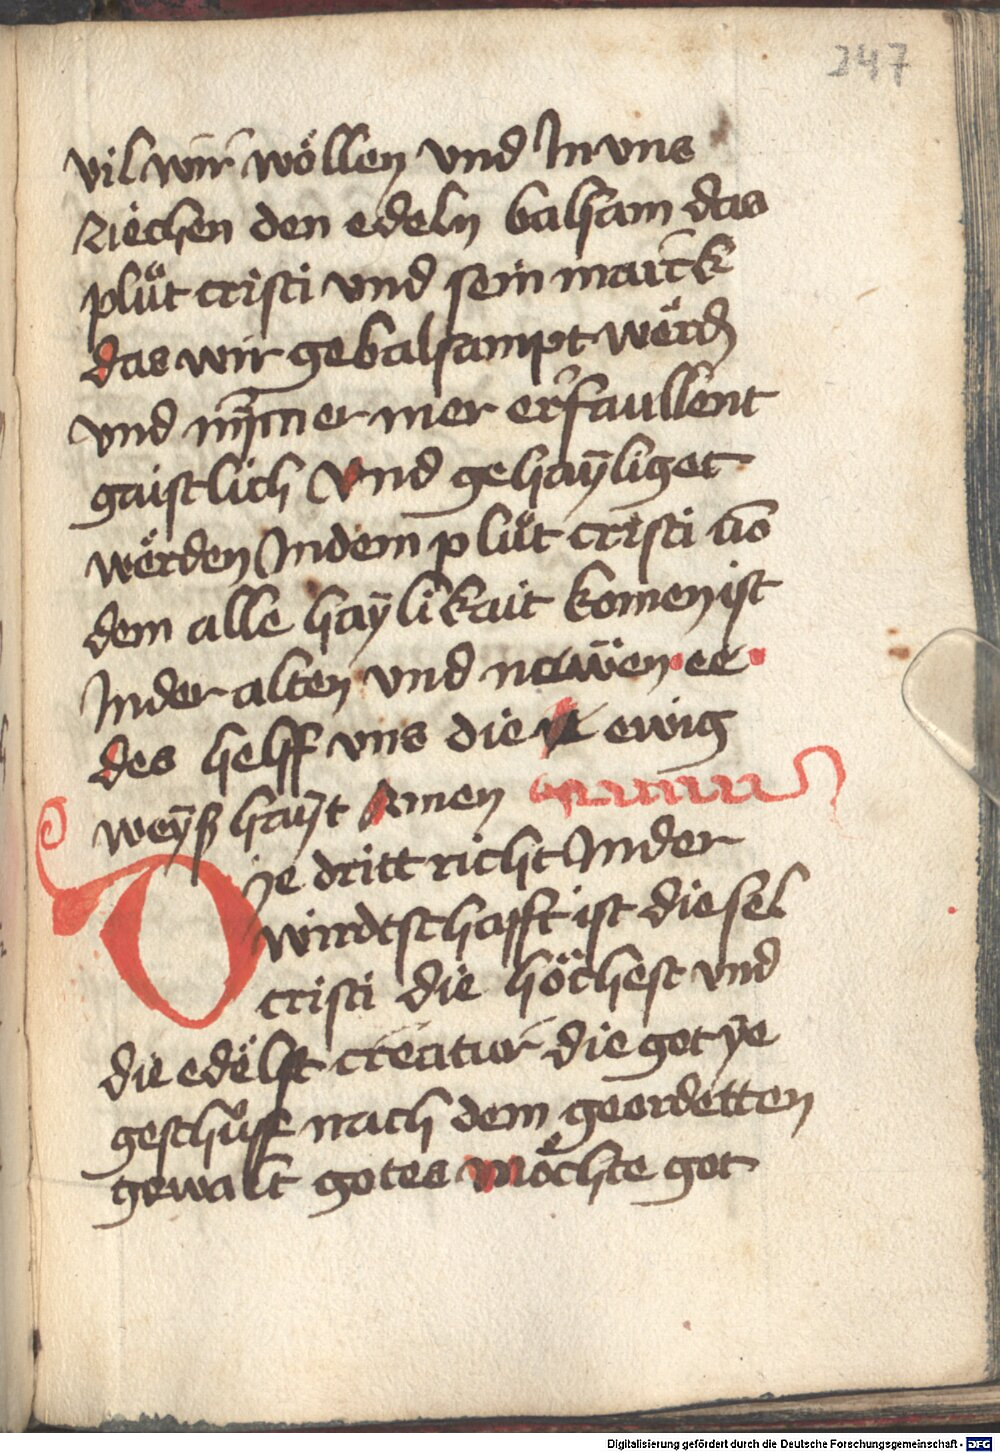 247
vil wir wöllen vnd In vns
ziechen den edeln balsam das
plüt cristi vnd sein marck
das wir gebalsampt werd
vnd nymer mer erfaullent
gaistlich Vnd gehaÿliget
wërden In dem plüt cristi uō
dem alle haÿlikait komen ist
In der alten vnd nawen ee
des helff vns die ewig
weÿßhaÿt Amen
Die dritt richt In der
wirdtschafft ist die sel
cristi die höchest vnd
die edelst creatur die got ÿe
geschüff nach dem geordetten
gewalt gotes möchte got
Digitalisierung gefördert durch die Deutsche Forschungsgemeinschaft - DFG